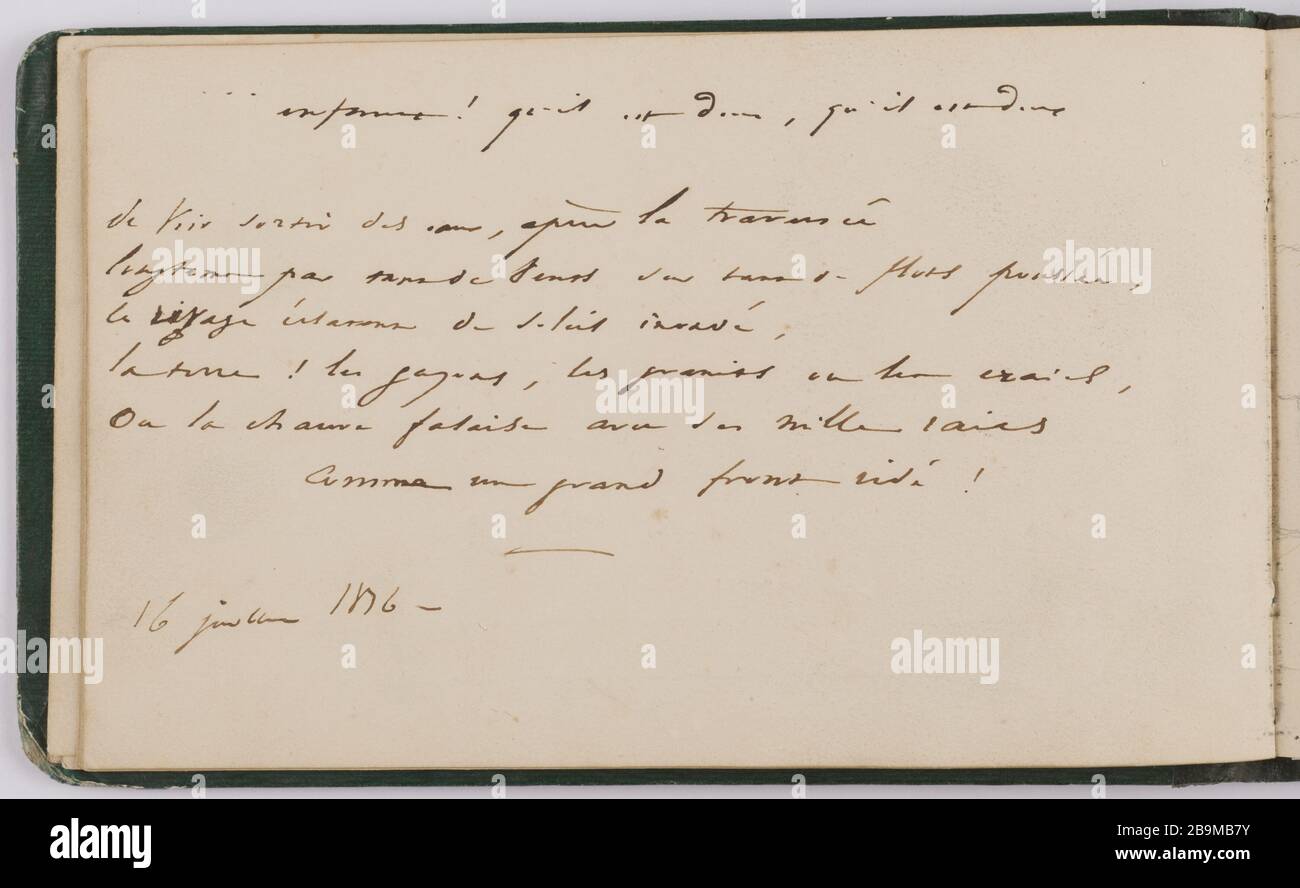 ... ! qu'il est doux, qu'il est doux
de voir sortir des eaux, après la traversée
longtemps par tant de vents sur tant de flots poussée,
le rivage de soleil inondé,
la terre ! les gazons, les granits ou les craies,
Ou la chauve falaise avec des mille raies
Comme un grand front ridé !
16 juillet 1836 -
a
alamy
alamy
Image ID: 2B9MB7Y
www.alamy.com